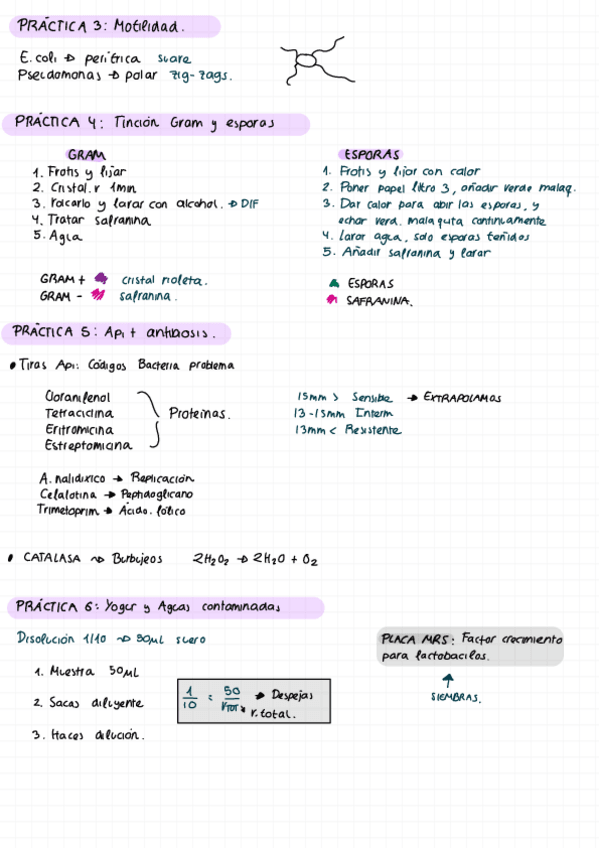 PRÁCTICA 3: Motilidad.
E. coli → peritrica suave
Pseudomonas → polar zig-zags.
PRÁCTICA 4: Tinción Gram y esporas
GRAM
1. Frotis y fijar
2. Cristal. v 1min
3. Volcarlo y lavar con alcohol. → DIF
4. Tratar safranina
5. Agua
GRAM + cristal violeta.
GRAM - safranina.
ESPORAS
1. Frotis y fijar con calor
2. Poner papel filtro 3, añadir verde malaq.
3. Dar calor para abir las esporas, y
echar verd. malaquita continuamente
4. Lavar agua, solo esporas teñidos
5. Añadir safranina y lavar
ESPORAS
SAFRANINA.
PRÁCTICA 5: Api + antibiosis.
• Tiras Api: Códigos Bacteria problema
Cloranfenol
Tetraciclina
Eritromicina
Estreptomicina
Proteinas.
15mm > Sensible → EXTRAPOLAMOS
13-15mm Interm
13mm < Resistente
A. nalidixico → Replicación
Cefalotina → Peptidoglicano
Trimetoprim → Ácido. fólico
• CATALASA ~> Burbujeos 2H₂O₂ → 2H₂O + O₂
PRÁCTICA 6: Yogur y Aguas contaminadas
Disolución 1/10 ~> 50mL suero
1. Muestra 50mL
2. Sacas diluyente
3. Haces dilución.
1/10 = 50/VTOT → Despejas
v. total.
PLACA MRS: Factor crecimiento
para lactobacilos.
↑
SIEMBRAS.